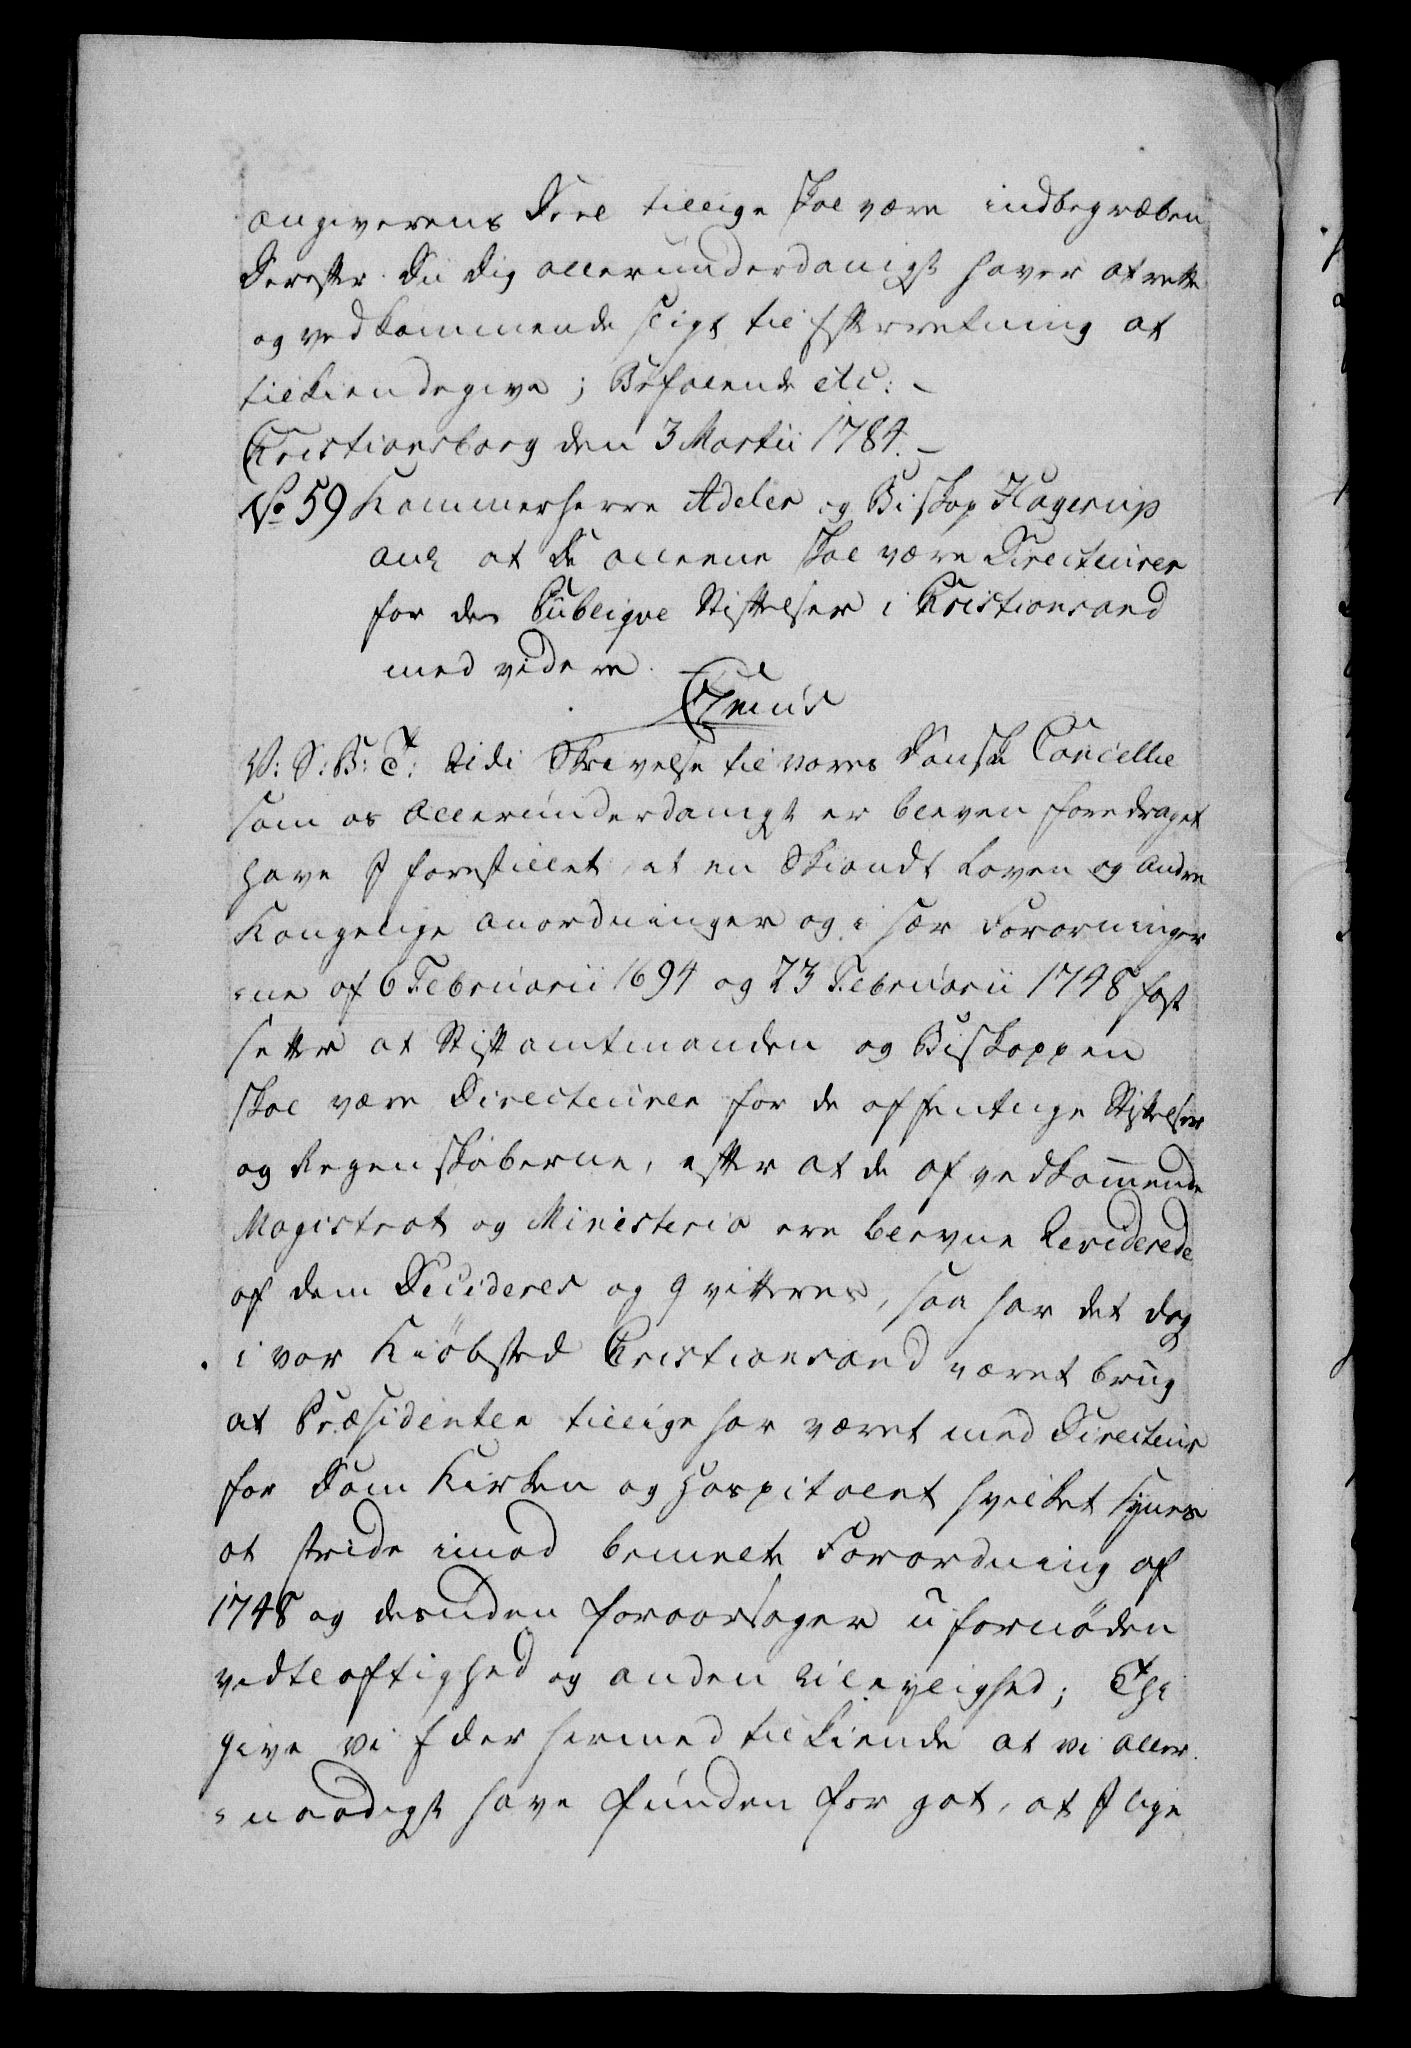 angiverens Deel tillige skal være indbegræben
Derefter Du dig allerunderdanigst haver at rette
og vedkommende sligt til Efterretning at
tilkiendegive; Befalende etc: –
Christiansborg den 3 Martii 1784. –
No 59 Kammerherre Adeler og Biskop Hagerup
ang at De alleene skal være Directeurer
for de Publiqve Stiftelser i Christiansand
med videre.
C7mus
V: S: B: T: Udi Skrivelse til vores Danske Cancellie
som os Allerunderdanigst er bleven foredraget
have I forestillet, at en Skiøndt Loven og andre
Kongelige anordninger og i sær Forordninger
=ne af 6 Februarii 1694 og 23 Februarii 1748 fast
sætter at Stiftamtmanden og Biskoppen
skal være Directeurer for de offentlige Stiftelser
og Regenskaberne, efter at de af vedkommende
Magistrat og Ministerio ere blevne Reviderede
af dem Decideres og qvitteres, saa har det dog
i vor Kiöbsted Christiansand været brug
at Præsidenten tillige har været med Directeur
for Dom Kirken og Hospitalet hvilket synes
at stride imod bemelte Forordning af
1748 og desuden foraarsager ufornöden
vedtløftighed og anden Uleylighed; Thi
give vi Eder hermed tilkiende at vi aller
=naadigst have funden for got, at I lige